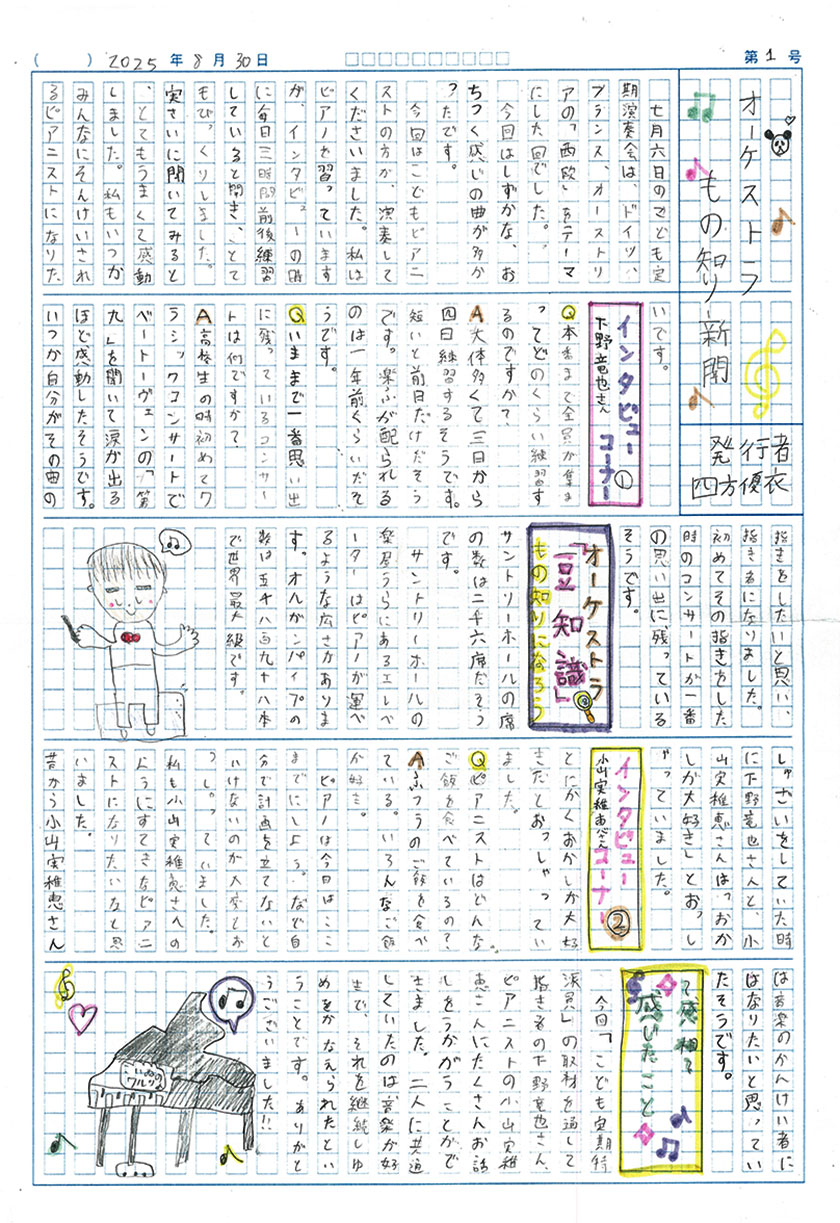 ( ) 2025年8月30日
第1号
オーケストラ
もの知り新聞
発行者
四方優衣
七月六日のこども定
期演奏会は、ドイツ、
フランス、オーストリ
アの「西欧」をテーマ
にした回でした。
今回はしずかな、お
ちつく感じの曲が多か
ったです。
今回はこどもピアニ
ストの方が、演奏して
くださいました。私は
ピアノを習っています
が、インタビューの時
に毎日三時間前後練習
していると聞き、とて
もびっくりしました。
実さいに聞いてみると
、とてもうまくて感動
しました。私もいつか
みんなにそんけいされ
るピアニストになりた
いです。
インタビューコーナー①
下野竜也さん
Q本番まで全員が集ま
ってどのくらい練習す
るのですか?
A大体多くて三日から
四日練習するそうです。
短いと前日だけだそう
です。楽ふが配られる
のは一年前くらいだそ
うです。
Qいままで一番思い出
に残っているコンサー
トは何ですか?
A高校生の時初めてク
ラシックコンサートで
ベートーヴェンの「第
九」を聞いて涙が出る
ほど感動したそうです。
いつか自分がその曲の
指きをしたいと思い、
指き者になりました。
初めてその指きをした
時のコンサートが一番
の思い出に残っている
そうです。
オーケストラ
「豆知識」
もの知りになろう
サントリーホールの席
の数は二千六席だそう
です。
サントリーホールの
楽屋うらにあるエレベ
ーターはピアノが運べ
るような広さがありま
す。オルガンパイプの
数は五千八百九十八本
で世界最大級です。
しゅざいをしていた時
に下野竜也さんと、小
山実稚恵さんは「おか
しが大好き」とおっし
ゃっていました。
インタビューコーナー②
小山実稚恵さん
とにかくおかしが大好
きだとおっしゃってい
ました。
Qピアニストはどんな
ご飯を食べているの?
Aふつうのご飯を食べ
ている。いろんなご飯
が好き。
ピアノは今日はここ
までにしよう。など自
分で計画を立てないと
いけないのが大変とお
っしゃっていました。
私も小山実稚恵さんの
ようにすてきなピアニ
ストになりたいなと思
いました。
昔から小山実稚恵さん
は音楽のかんけい者に
はなりたいと思ってい
たそうです。
感じたこと
今回「こども定期特
派員」の取材を通して
指き者の下野竜也さん、
ピアニストの小山実稚
恵さんにたくさんお話
しをうかがうことがで
きました。二人に共通
していたのは音楽が好
きで、それを継続しゆ
めをかなえられたとい
うことです。ありがと
うございました!!